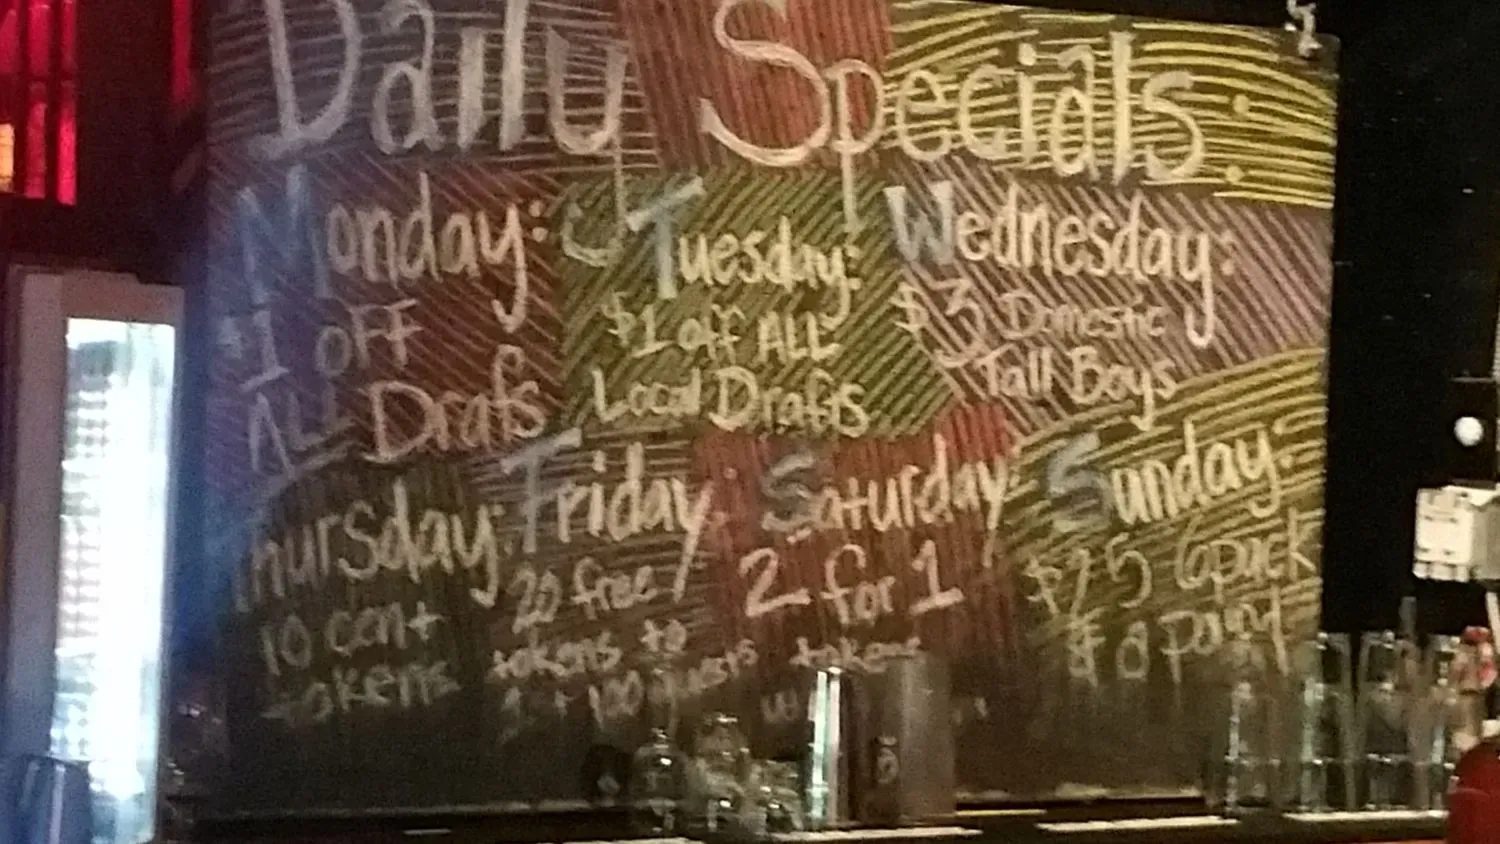 Daily Specials:
Monday:
$1 OFF
ALL Drafts
Tuesday:
$1 off ALL
Local Drafts
Wednesday:
$3 Domestic
Tall Boys
Thursday:
10 cent
tokens
Friday:
20 free
tokens to
1st 100 guests
Saturday:
2 for 1
tokens
Sunday:
$25 6pack